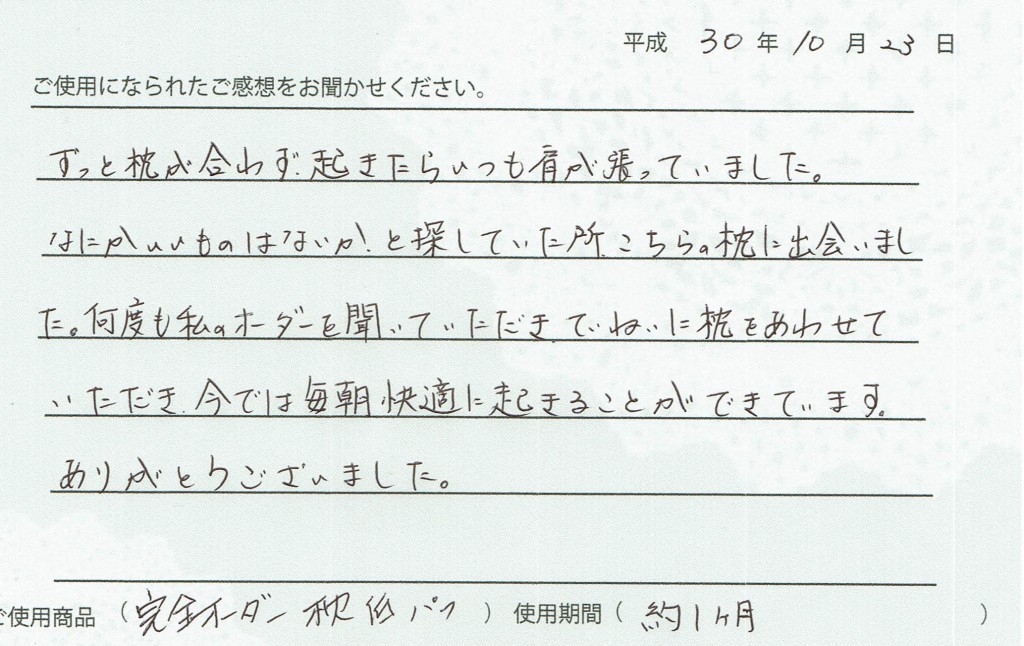 平成 30 年 10 月 23 日
ご使用になられたご感想をお聞かせください。
ずっと枕が合わず、起きたらいつも肩が張っていました。
なにかいいものはないか、と探していた所、こちらの枕に出会いまし
た。何度も私のオーダーを聞いていただき、ていねいに枕をあわせて
いただき、今では毎朝快適に起きることができています。
ありがとうございました。
ご使用商品 (完全オーダー枕 低 ) 使用期間 ( 約1ヶ月 )